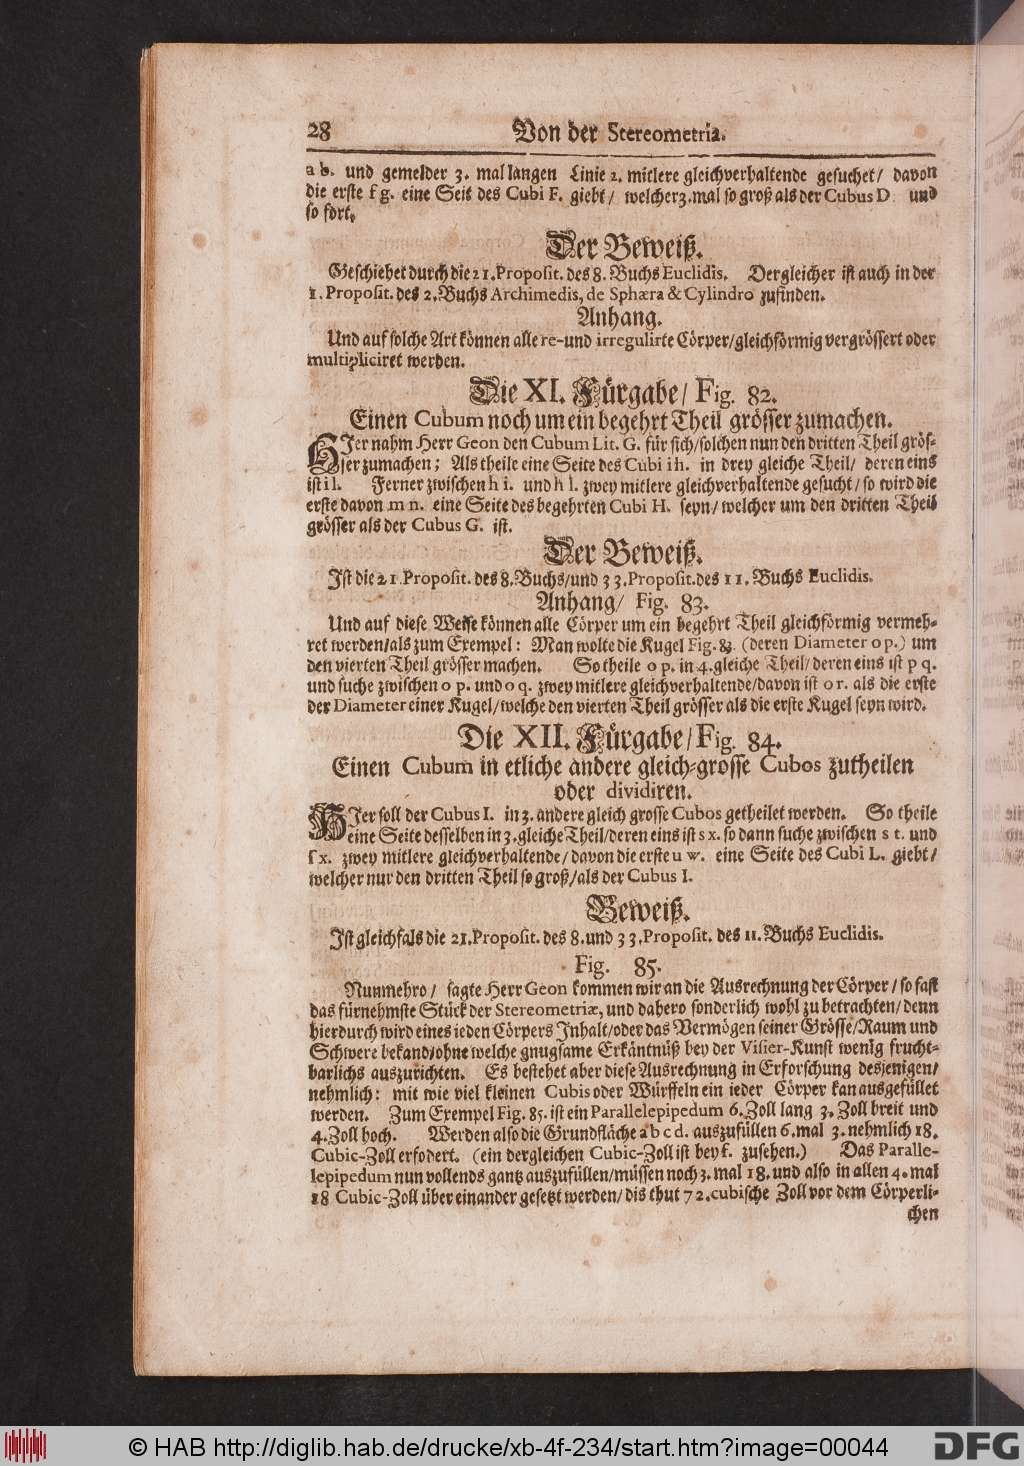 28 Von der Stereometria.
a b. und gemelder 3. mal langen Linie 2. mitlere gleichverhaltende gesuchet/ davon
die erste f g. eine Seit des Cubi F. giebt/ welcher 3. mal so groß als der Cubus D. und
so fort.
Der Beweiß.
Geschiehet durch die 21. Proposit. des 8. Buchs Euclidis. Dergleicher ist auch in der
1. Proposit. des 2. Buchs Archimedis, de Sphæra & Cylindro zufinden.
Anhang.
Und auf solche Art können alle re- und irregulirte Cörper/gleichförmig vergrössert oder
multipliciret werden.
Die XI. Fürgabe/ Fig. 82.
Einen Cubum noch um ein begehrt Theil grösser zumachen.
HIer nahm Herr Geon den Cubum Lit. G. für sich/solchen nun den dritten Theil grös-
ser zumachen; Als theile eine Seite des Cubi i h. in drey gleiche Theil/ deren eins
ist i l. Ferner zwischen h i. und h l. zwey mitlere gleichverhaltende gesucht/ so wird die
erste davon m n. eine Seite des begehrten Cubi H. seyn/ welcher um den dritten Theil
grösser als der Cubus G. ist.
Der Beweiß.
Ist die 21. Proposit. des 8. Buchs/und 33. Proposit. des 11. Buchs Euclidis.
Anhang/ Fig. 83.
Und auf diese Weise können alle Cörper um ein begehrt Theil gleichförmig vermeh-
ret werden/als zum Exempel: Man wolte die Kugel Fig. 83. (deren Diameter o p.) um
den vierten Theil grösser machen. So theile o p. in 4. gleiche Theil/ deren eins ist p q.
und suche zwischen o p. und o q. zwey mitlere gleichverhaltende/davon ist o r. als die erste
der Diameter einer Kugel/welche den vierten Theil grösser als die erste Kugel seyn wird.
Die XII. Fürgabe/Fig. 84.
Einen Cubum in etliche andere gleich-grosse Cubos zutheilen
oder dividiren.
HIer soll der Cubus I. in 3. andere gleich grosse Cubos getheilet werden. So theile
eine Seite desselben in 3. gleiche Theil/deren eins ist s x. so dann suche zwischen s t. und
s x. zwey mitlere gleichverhaltende/ davon die erste u w. eine Seite des Cubi L. giebt/
welcher nur den dritten Theil so groß/als der Cubus I.
Beweiß.
Ist gleichfals die 21. Proposit. des 8. und 33. Proposit. des 11. Buchs Euclidis.
Fig. 85.
Nunmehro/ sagte Herr Geon kommen wir an die Ausrechnung der Cörper/ so fast
das fürnehmste Stück der Stereometriæ, und dahero sonderlich wohl zu betrachten/ denn
hierdurch wird eines ieden Cörpers Inhalt/oder das Vermögen seiner Grösse/Raum und
Schwere bekand/ohne welche gnugsame Erkäntnüß bey der Visier-Kunst wenig frucht-
barlichs auszurichten. Es bestehet aber diese Ausrechnung in Erforschung desjenigen/
nehmlich: mit wie viel kleinen Cubis oder Würffeln ein ieder Cörper kan ausgefüllet
werden. Zum Exempel Fig. 85. ist ein Parallelepipedum 6. Zoll lang 3. Zoll breit und
4. Zoll hoch. Werden also die Grundfläche a b c d. auszufüllen 6. mal 3. nehmlich 18.
Cubic-Zoll erfodert. (ein dergleichen Cubic-Zoll ist bey f. zusehen.) Das Paralle-
lepipedum nun vollends gantz auszufüllen/müssen noch 3. mal 18. und also in allen 4. mal
18 Cubic-Zoll über einander gesetzt werden/ dis thut 72. cubische Zoll vor dem Cörperli-
chen
© HAB http://diglib.hab.de/drucke/xb-4f-234/start.htm?image=00044
DFG